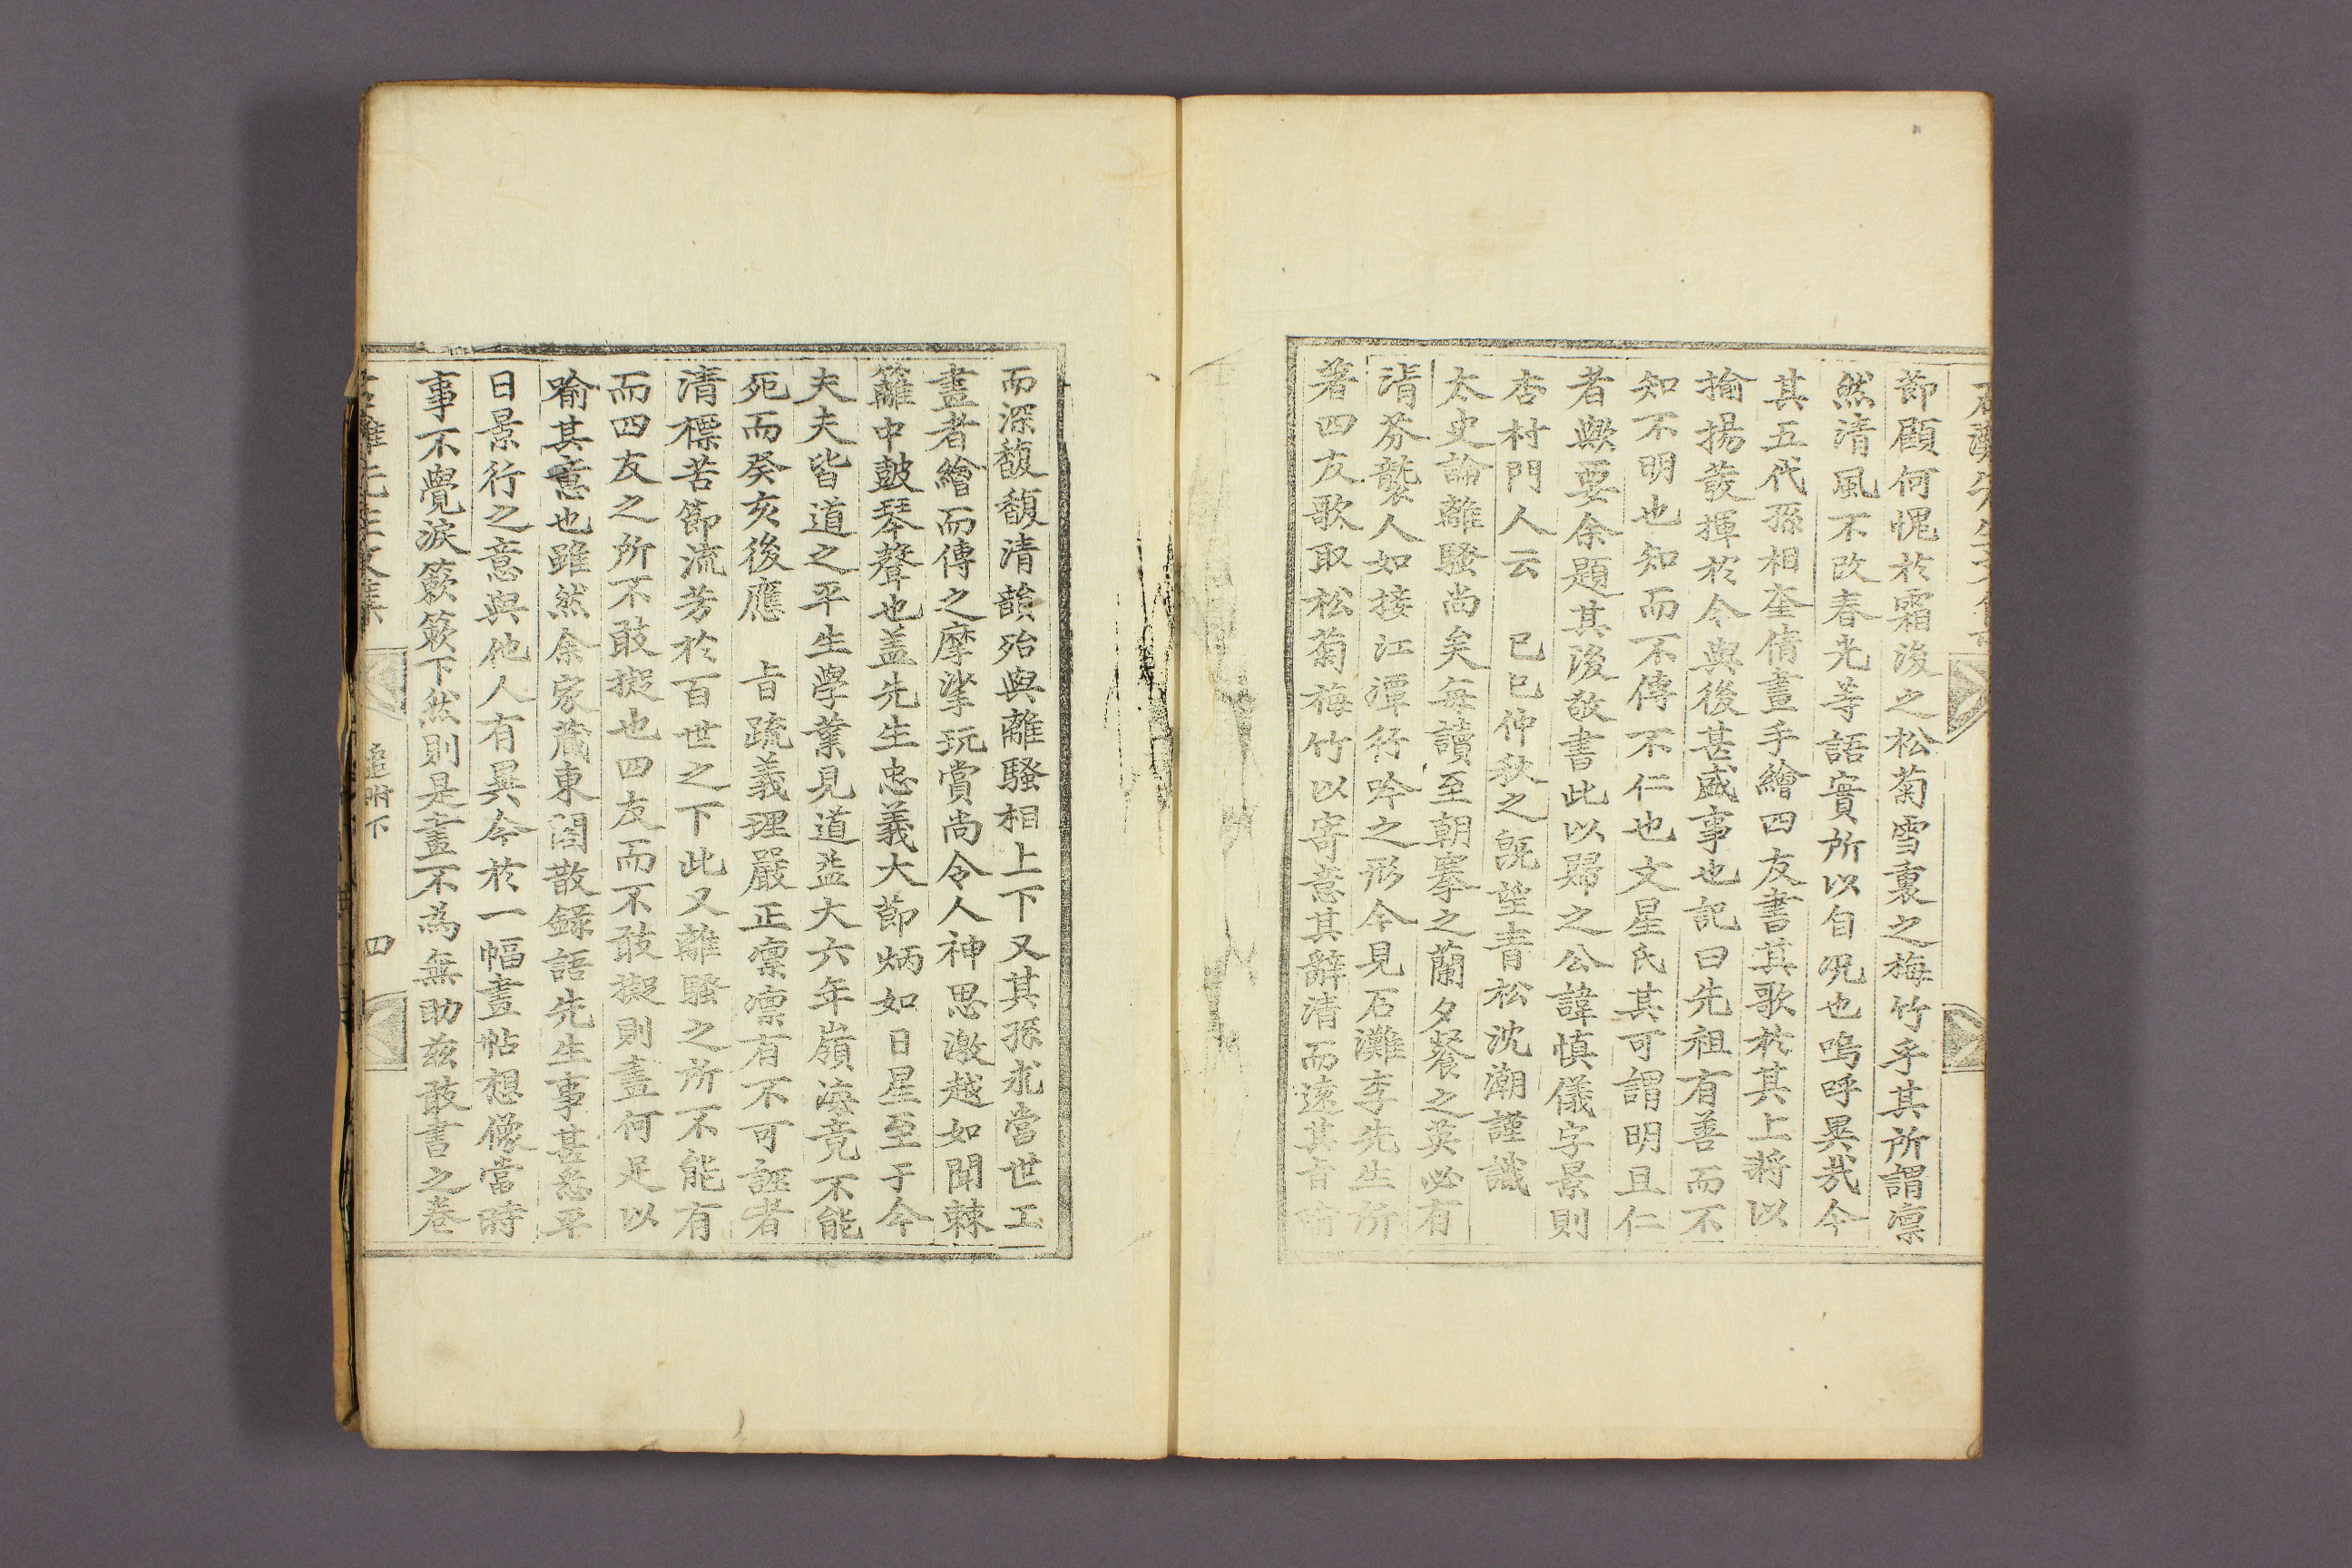 節顧何愧於霜後之松菊雪裏之梅竹乎其所謂凛
然清風不改春光等語實所以自况也嗚呼異哉今
其五代孫相奎倩畫手繪四友書其歌於其上將以
揄揚發揮於今與後甚盛事也記曰先祖有善而不
知不明也知而不傳不仁也文星氏其可謂明且仁
者歟要余題其後敬書此以歸之公諱愼儀字景則
杏村門人云　已巳仲秋之旣望青松沈潮謹識
太史論離騷尚矣每讀至朝搴之蘭夕餐之英必有
淸芬襲人如接江潭行吟之形今見石灘李先生所
著四友歌取松菊梅竹以寄意其辭清而遠其旨喻
而深馥馥清韻殆與離騷相上下又其孫求當世工
畫者繪而傳之摩挲玩賞尚令人神思激越如聞棘
籬中鼓琴聲也盖先生忠義大節炳如日星至于今
夫夫皆道之平生學業見道益大六年嶺海竟不能
死而癸亥後應　旨疏義理嚴正凛凛有不可誣者
清標苦節流芳於百世之下此又離騷之所不能有
而四友之所不敢擬也四友而不敢擬則畫何足以
喻其意也雖然余家藏東閣散錄語先生事甚悉平
日景行之意與他人有異今於一幅畫帖想像當時
事不覺淚簌簌下然則是畫不為無助玆敢書之卷
石灘先生文集　追附下　四